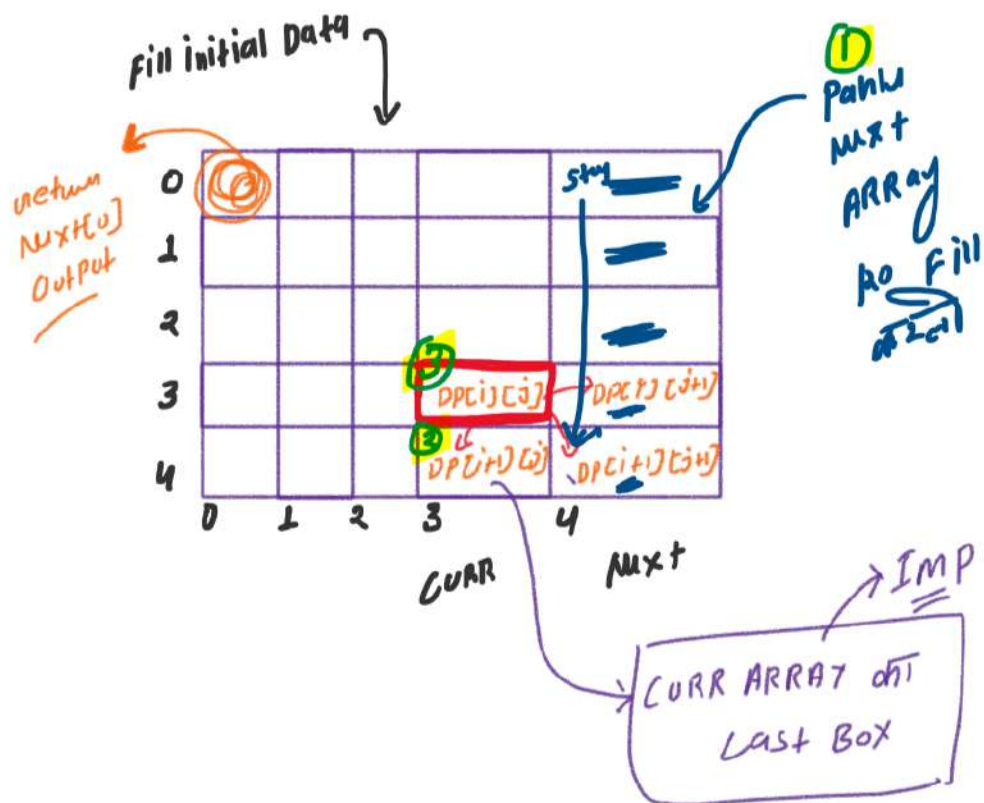 Fill initial Data
1
Pahle
nxt
ARRay
ko Fill
return
Nxt[0]
Output
0
stay
1
2
3
DP[i][j]
DP[i][j+1]
2
4
DP[i+1][j]
DP[i+1][j+1]
0 1 2 3 4
CURR
Nxt
IMP
CURR ARRAY का
Last BOX